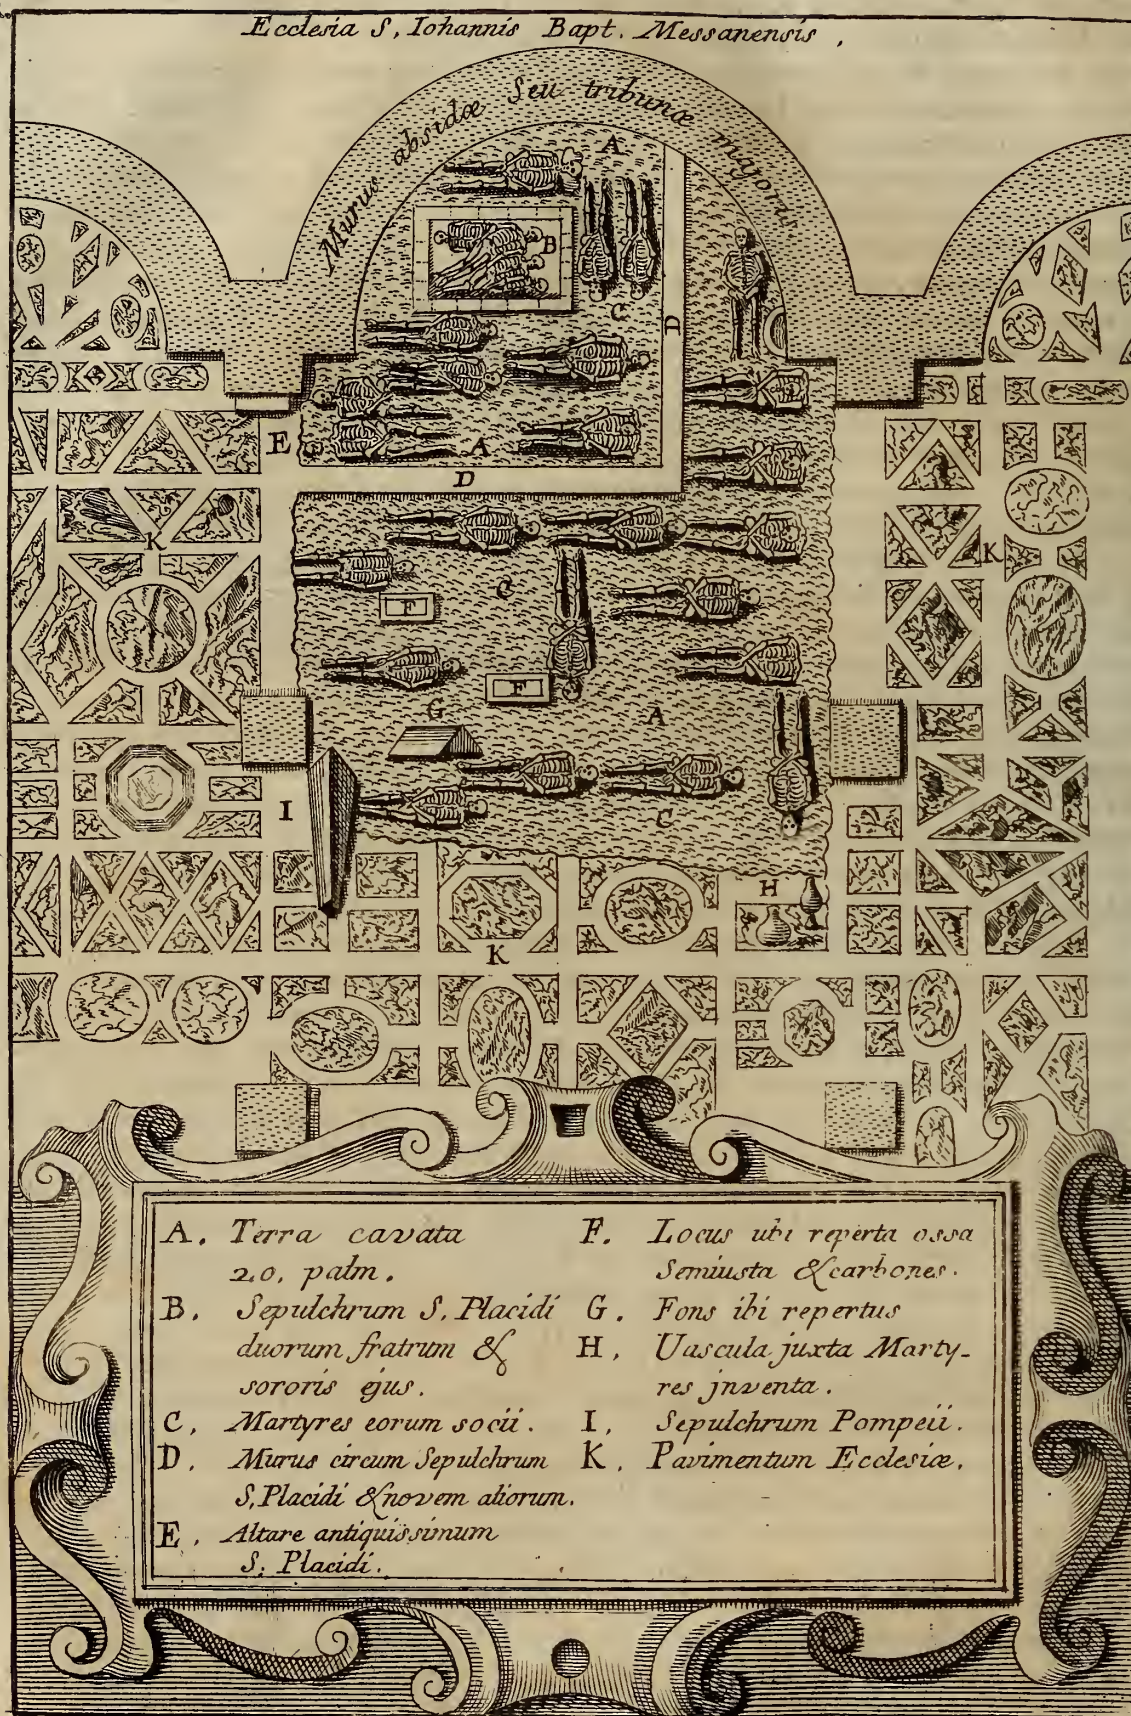 Ecclesia S, Iohannis Bapt. Messanensis,
Murus absidæ Seu tribunæ majoris
A
B
C
D
A
E
D
K
C
F
K
F
G
A
I
C
H
K
A. Terra cavata
20, palm.
B. Sepulchrum S. Placidi
duorum fratrum &
sororis ejus.
C, Martyres eorum socii.
D. Murus circum Sepulchrum
S, Placidi & novem aliorum.
E, Altare antiquissimum
S. Placidi.
F. Locus ubi reperta ossa
Semiusta & carbones.
G. Fons ibi repertus
H, Uascula juxta Marty-
res jnventa.
I, Sepulchrum Pompeii.
K, Pavimentum Ecclesiæ.